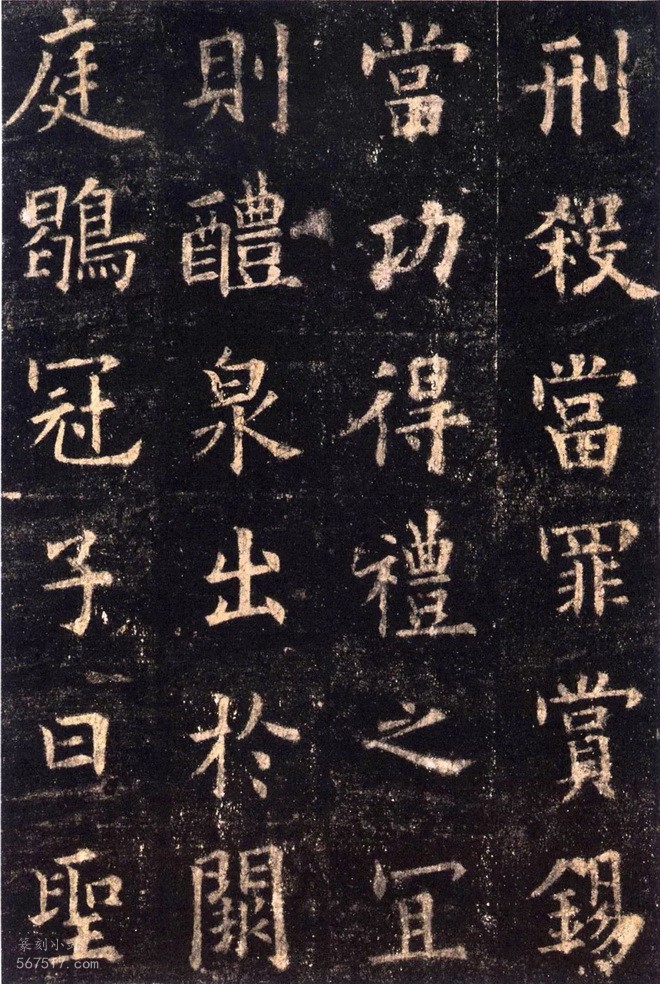 刑殺當罪賞錫
當功得禮之宜
則醴泉出於闕
庭鶡冠子曰聖
篆刻小站
567517.com